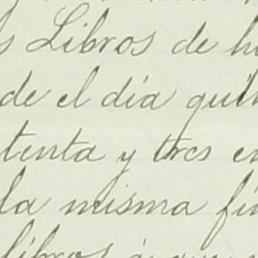 s Libros de h
de el día qui
tenta y tres e
la misma fi
libros